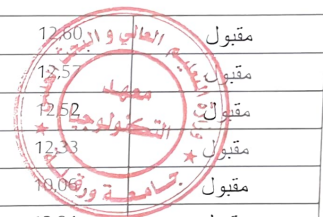 مقبول 12,60
مقبول 12,57
مقبول 12,52
مقبول 12,33
مقبول 10,06
مقبول
وزارة التعليم العالي و البحث العلمي
معهد
التكنولوجيا
جامعة ورقلة